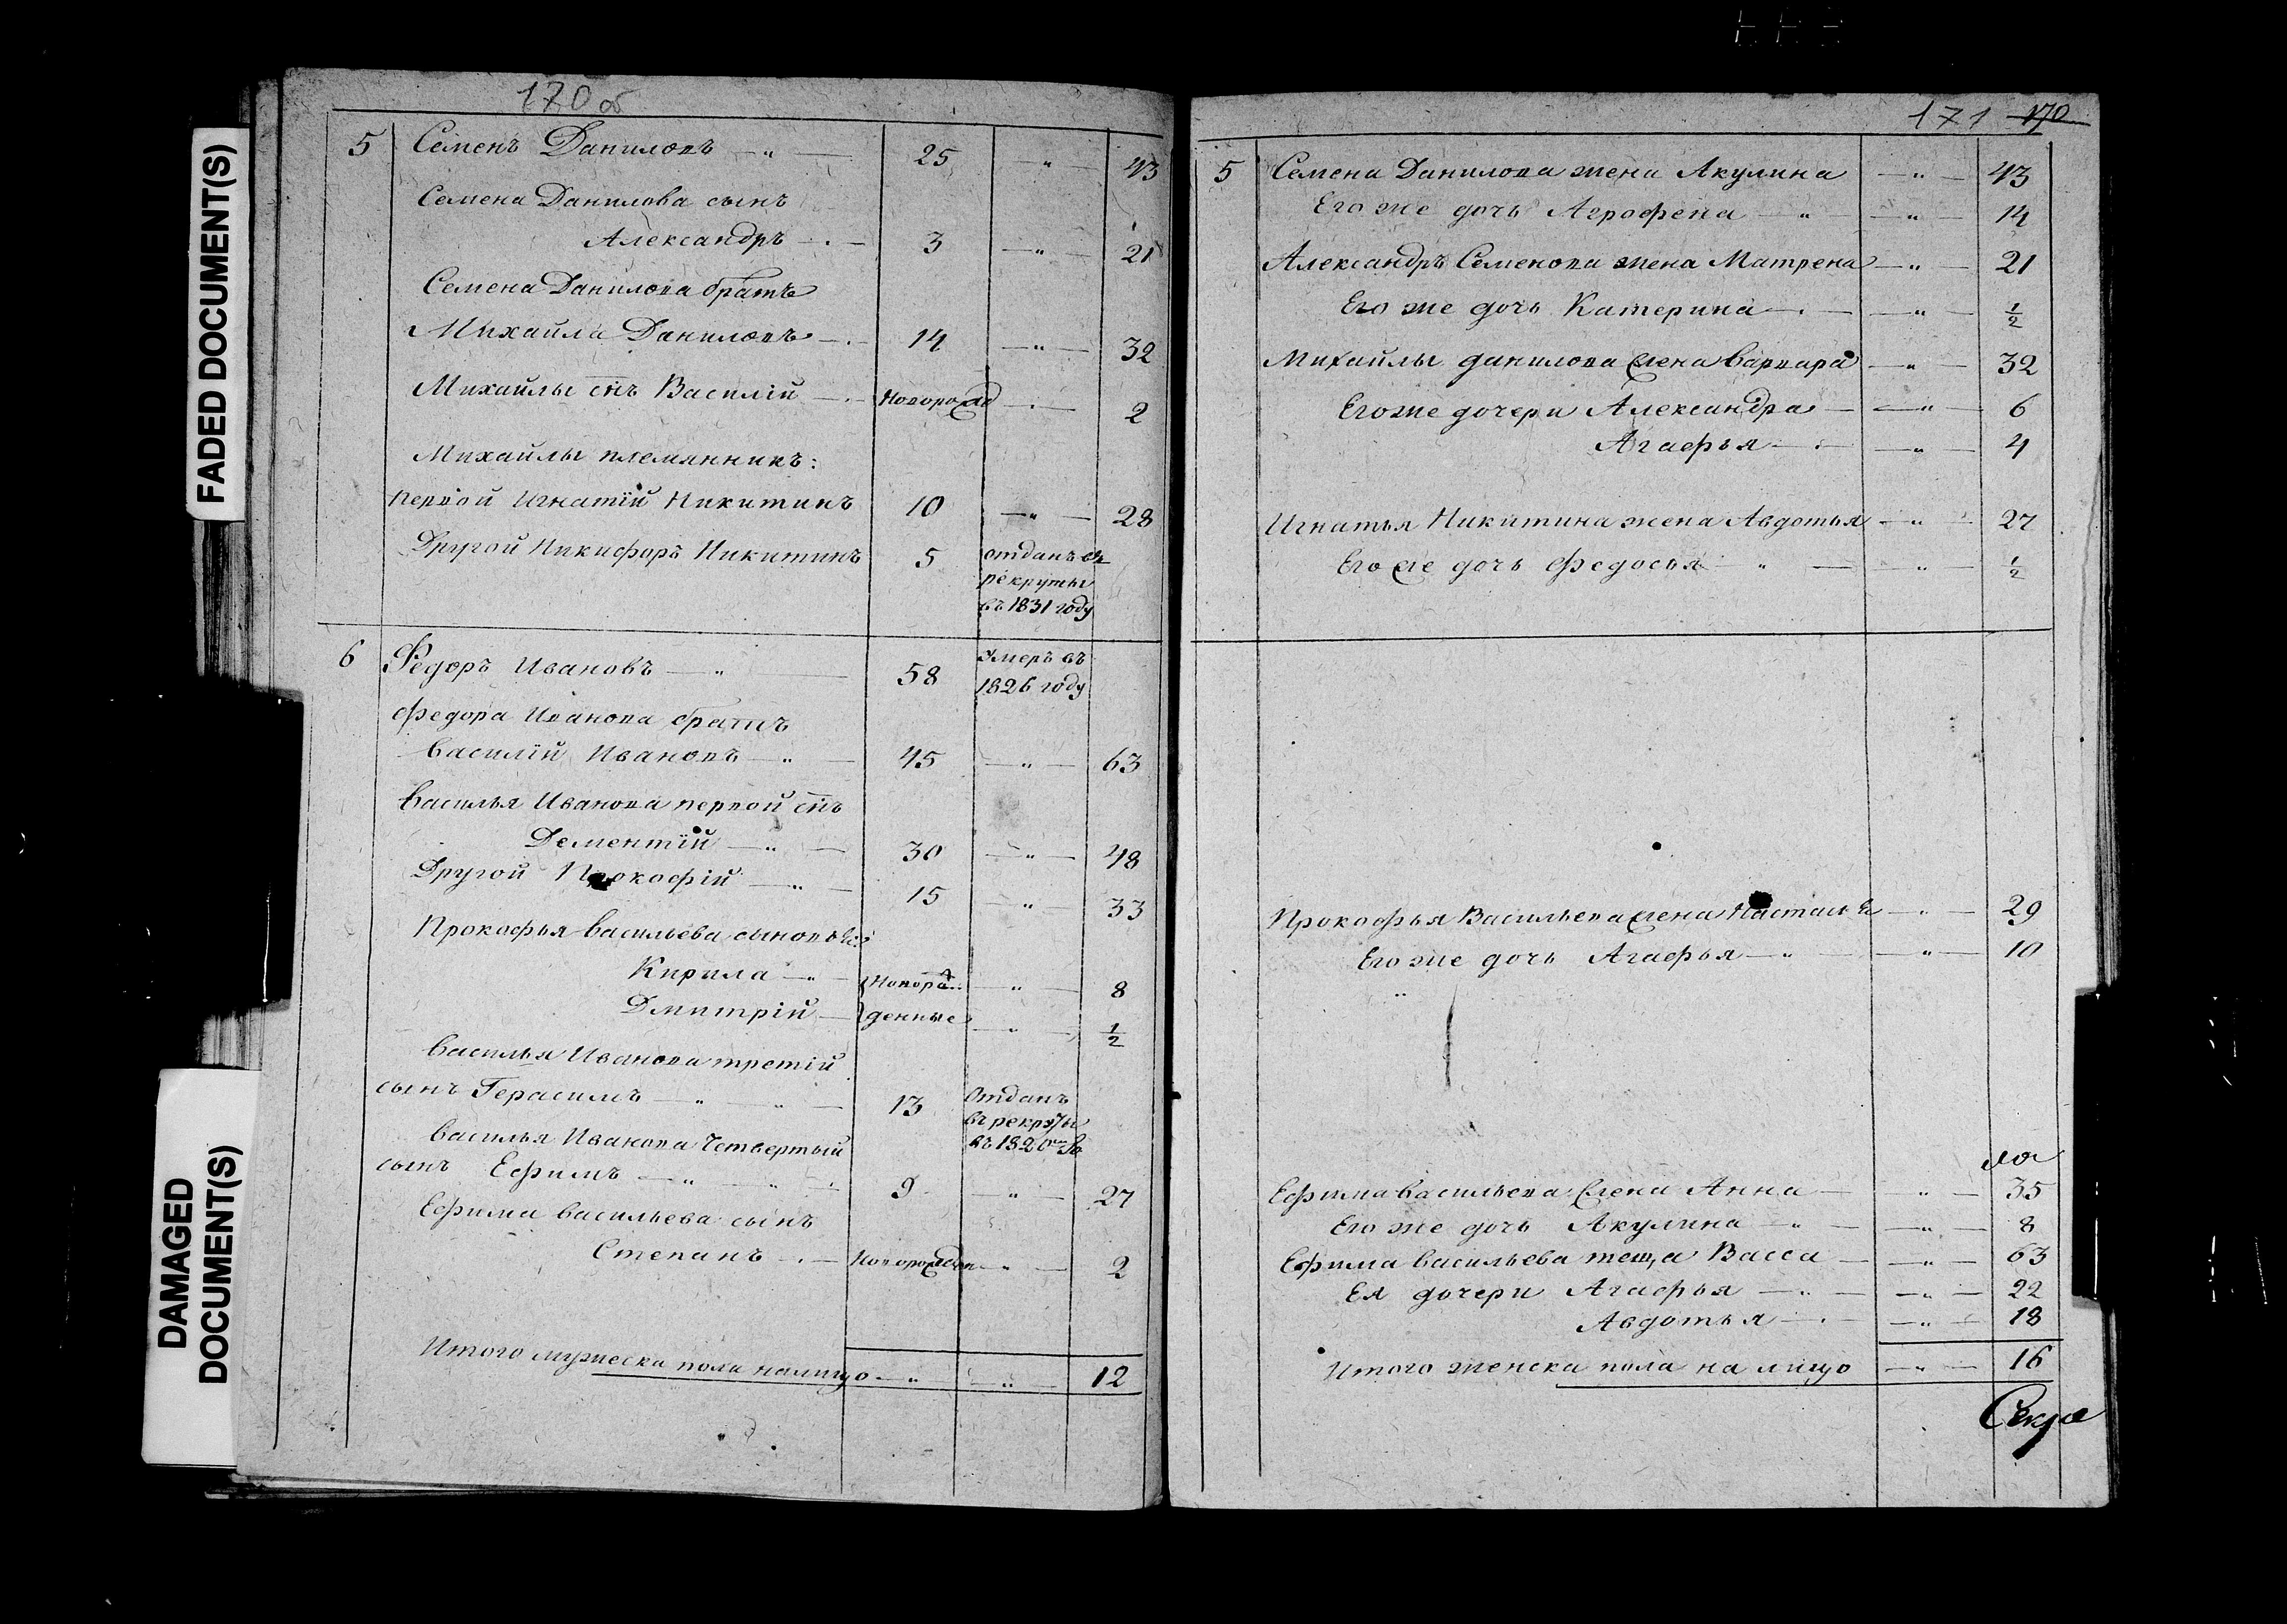 FADED DOCUMENT(S)
DAMAGED
DOCUMENT(S)
170 об
5 Семенъ Даниловъ — „ — 25 — „ — 43
Семена Данилова сынъ
Александръ — 3 — „ — 21
Семена Данилова братъ
Михайла Даниловъ — 14 — „ — 32
Михайлы снъ Василій — Новорожд — „ — 2
Михайлы племянникъ:
первой Игнатій Никитинъ 10 — „ — 28
Другой Никифоръ Никитинъ 5 отданъ въ
рекруты
въ 1831 году
6 Федоръ Ивановъ — „ — 58 Умеръ въ
1826 году
Федора Иванова братъ
Василій Ивановъ — „ — 45 — „ — 63
Василья Иванова первой снъ
Дементій — „ — 30 — „ — 48
Другой Прокофій — „ — 15 — „ — 33
Прокофья Васильева сыновья:
Кирила — „ — Новорож — „ — 8
Дмитрій — денные — „ — 1/2
Василья Иванова третій
сынъ Герасимъ — „ — „ — 13 Отданъ
въ рекруты
въ 1820 м го
Василья Иванова Четвертый
сынъ Ефимъ — „ — „ — 9 — „ — 27
Ефима Васильева сынъ
Степанъ — Новорожден — „ — 2
Итого мужеска пола налицо — „ — „ — 12
171 170
5 Семена Данилова жена Акулина — „ — 43
Его же дочь Агрофена — „ — „ — 14
Александръ Семенова жена Матрена — „ — 21
Его же дочь Катерина — „ — 1/2
Михайлы Данилова жена Варвара — „ — 32
Его же дочери Александра — „ — 6
Агафья — „ — 4
Игнатья Никитина жена Авдотья — „ — 27
Его же дочь Федосья — „ — „ — 1/2
Прокофья Васильева жена Настасья — „ — 29
Его же дочь Агафья — „ — „ — 10
„
Ефима Васильева жена Анна — „ — 35
Его же дочь Акулина — „ — „ — 8
Ефима Васильева теща Васса — „ — 63
Ея дочери Агафья — „ — „ — 22
Авдотья — „ — 18
Итого женска пола на лицо — „ — 16
Секре